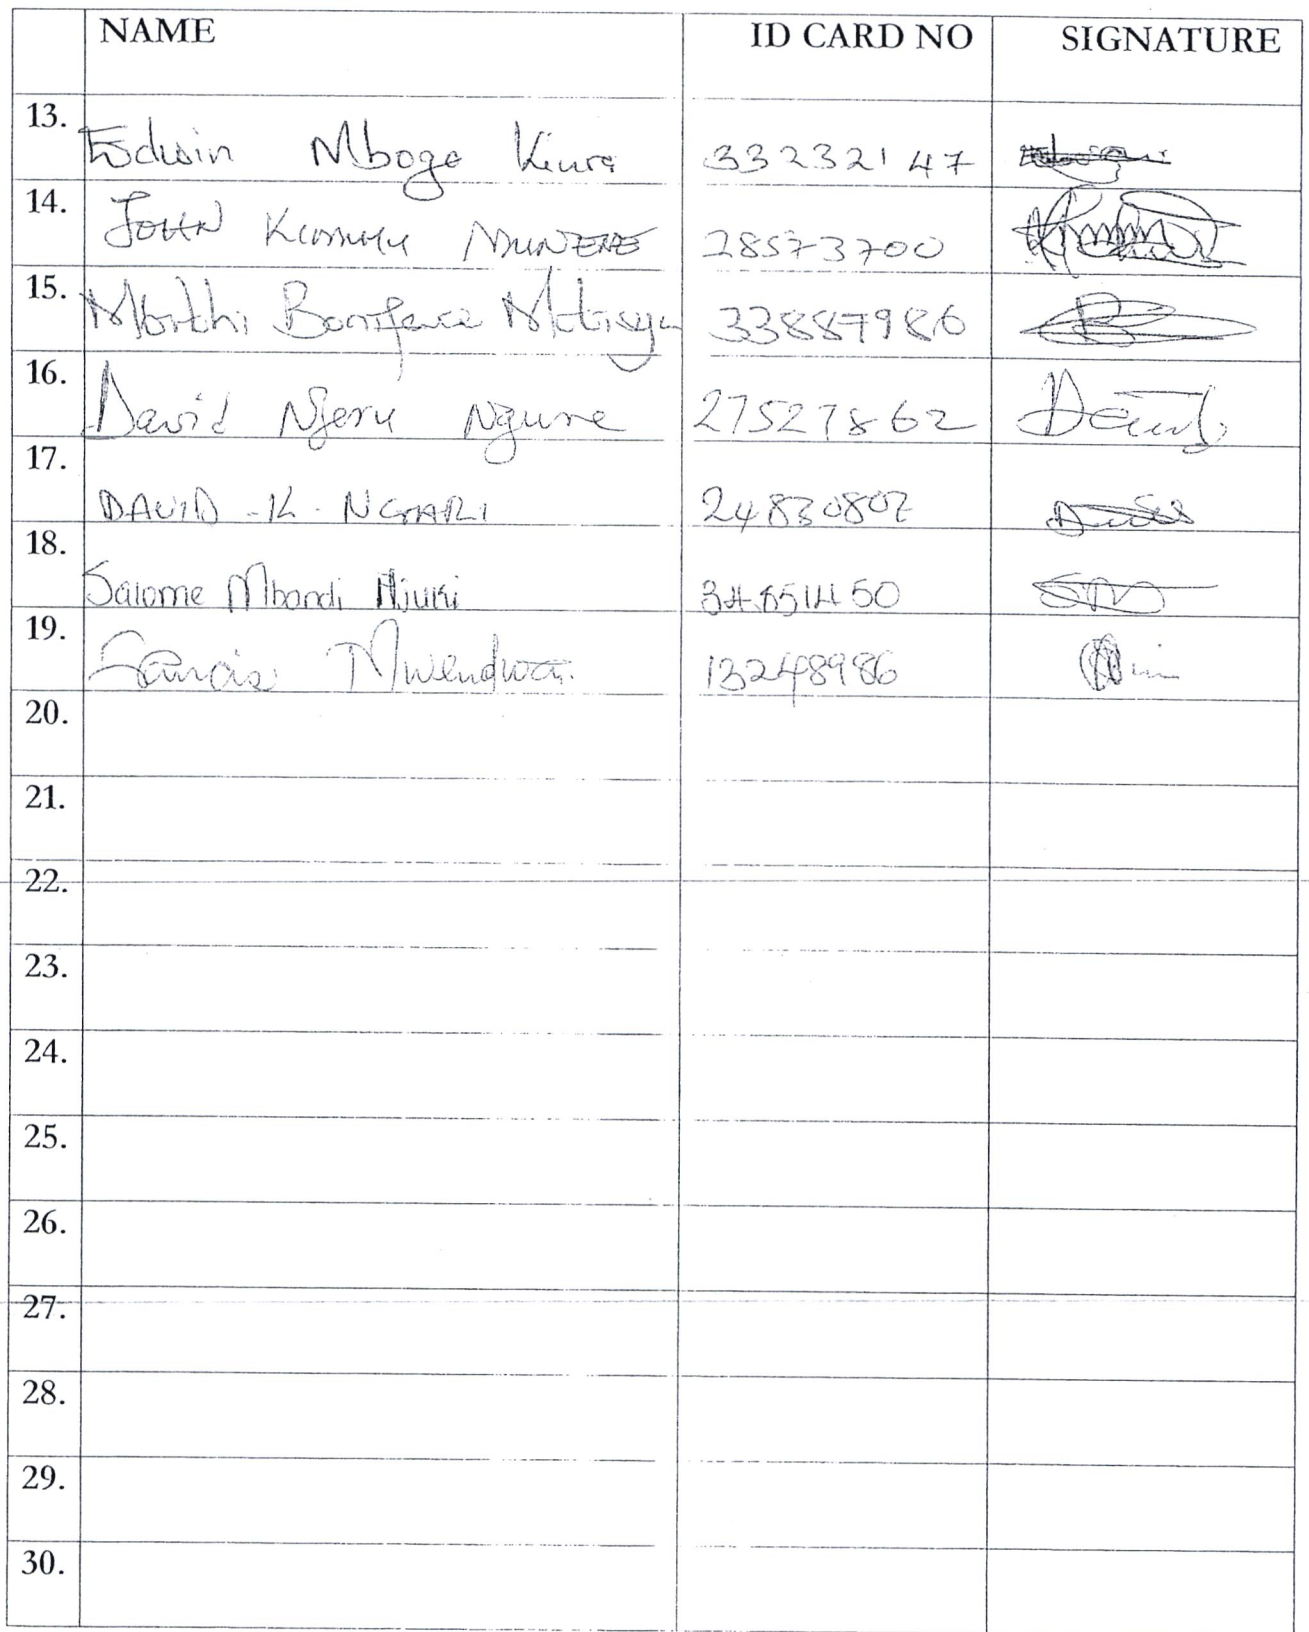 NAME ID CARD NO SIGNATURE
13. Edwin Mboge Kiura 33232147
14. JOHN MUNENE 28573700
15. Boniface 33887986
16. David Njeru Ngune 27527862
17. DAVID - K - NGARI 24830802
18. Salome Mbandi Njuki
19. Mwendwa 13248986
20.
21.
22.
23.
24.
25.
26.
27.
28.
29.
30.